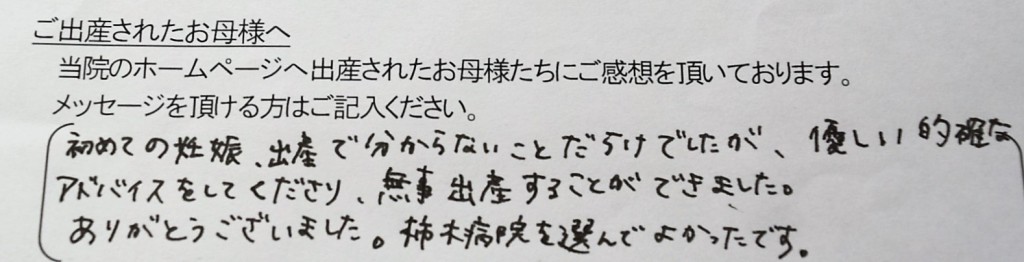 ご出産されたお母様へ
当院のホームページへ出産されたお母様たちにご感想を頂いております。
メッセージを頂ける方はご記入ください。
初めての妊娠、出産で分からないことだらけでしたが、優しい的確な
アドバイスをしてくださり、無事出産することができました。
ありがとうございました。柿木病院を選んでよかったです。